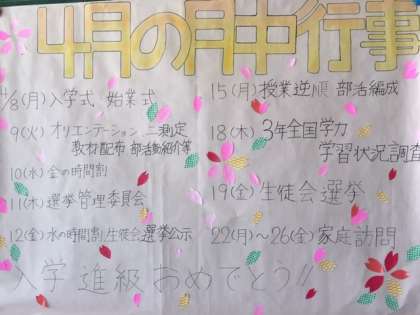 4月の月中行事
4/8(月)入学式 始業式
9(火)オリエンテーション 二測定
教材配布 部活動紹介等
10(水)金の時間割
11(木)選挙管理委員会
12(金)水の時間割/生徒会選挙公示
15(月)授業逆順 部活編成
18(木)3年全国学力
学習状況調査
19(金)生徒会選挙
22(月)~26(金)家庭訪問
入学進級おめでとう!!